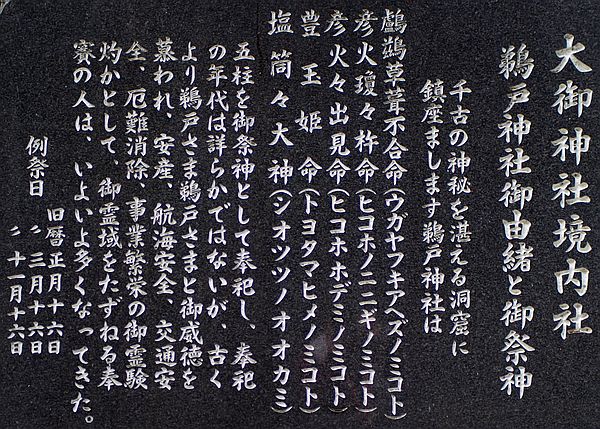 大御神社境内社
鵜戸神社御由緒と御祭神
千古の神秘を湛える洞窟に
鎮座まします鵜戸神社は
鸕鶿草葺不合命(ウガヤフキアヘズノミコト)
彦火瓊々杵命(ヒコホノニニギノミコト)
彦火々出見命(ヒコホホデミノミコト)
豊玉姫命(トヨタマヒメノミコト)
塩筒々大神(シオツツノオオカミ)
五柱を御祭神として奉祀し、奉祀
の年代は詳らかではないが、古く
より鵜戸さま鵜戸さまと御威徳を
慕われ、安産、航海安全、交通安
全、厄難消除、事業繁栄の御霊験
灼かとして、御霊域をたずねる奉
賽の人は、いよいよ多くなってきた。
例祭日
旧暦正月十六日
〃三月十六日
〃十一月十六日